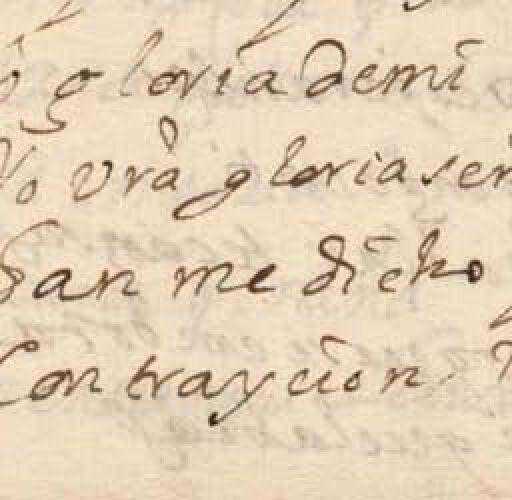 gloria demi
vrã gloria señ
San me dicho
Contraycion.